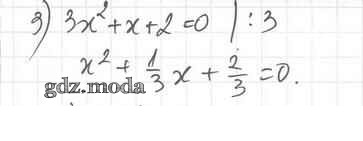 з) 3x² + x + 2 = 0 | : 3
x² + 1/3 x + 2/3 = 0.
gdz.moda